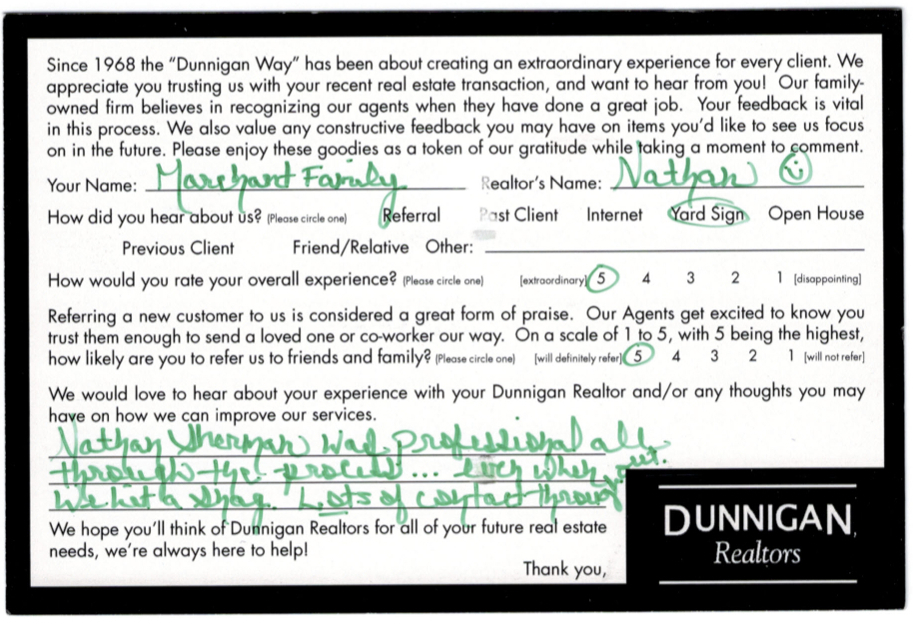 Since 1968 the “Dunnigan Way” has been about creating an extraordinary experience for every client. We
appreciate you trusting us with your recent real estate transaction, and want to hear from you! Our family-
owned firm believes in recognizing our agents when they have done a great job. Your feedback is vital
in this process. We also value any constructive feedback you may have on items you’d like to see us focus
on in the future. Please enjoy these goodies as a token of our gratitude while taking a moment to comment.
Your Name: Marchard Family Realtor’s Name: Nathan
How did you hear about us? (Please circle one) Referral Past Client Internet Yard Sign Open House
Previous Client Friend/Relative Other:
How would you rate your overall experience? (Please circle one) [extraordinary] 5 4 3 2 1 [disappointing]
Referring a new customer to us is considered a great form of praise. Our Agents get excited to know you
trust them enough to send a loved one or co-worker our way. On a scale of 1 to 5, with 5 being the highest,
how likely are you to refer us to friends and family? (Please circle one) [will definitely refer] 5 4 3 2 1 [will not refer]
We would love to hear about your experience with your Dunnigan Realtor and/or any thoughts you may
have on how we can improve our services.
Nathan Sherman was professional all
through the process... even when
we hit a snag. Lots of contact throughout.
We hope you’ll think of Dunnigan Realtors for all of your future real estate
needs, we’re always here to help!
Thank you,
DUNNIGAN
Realtors